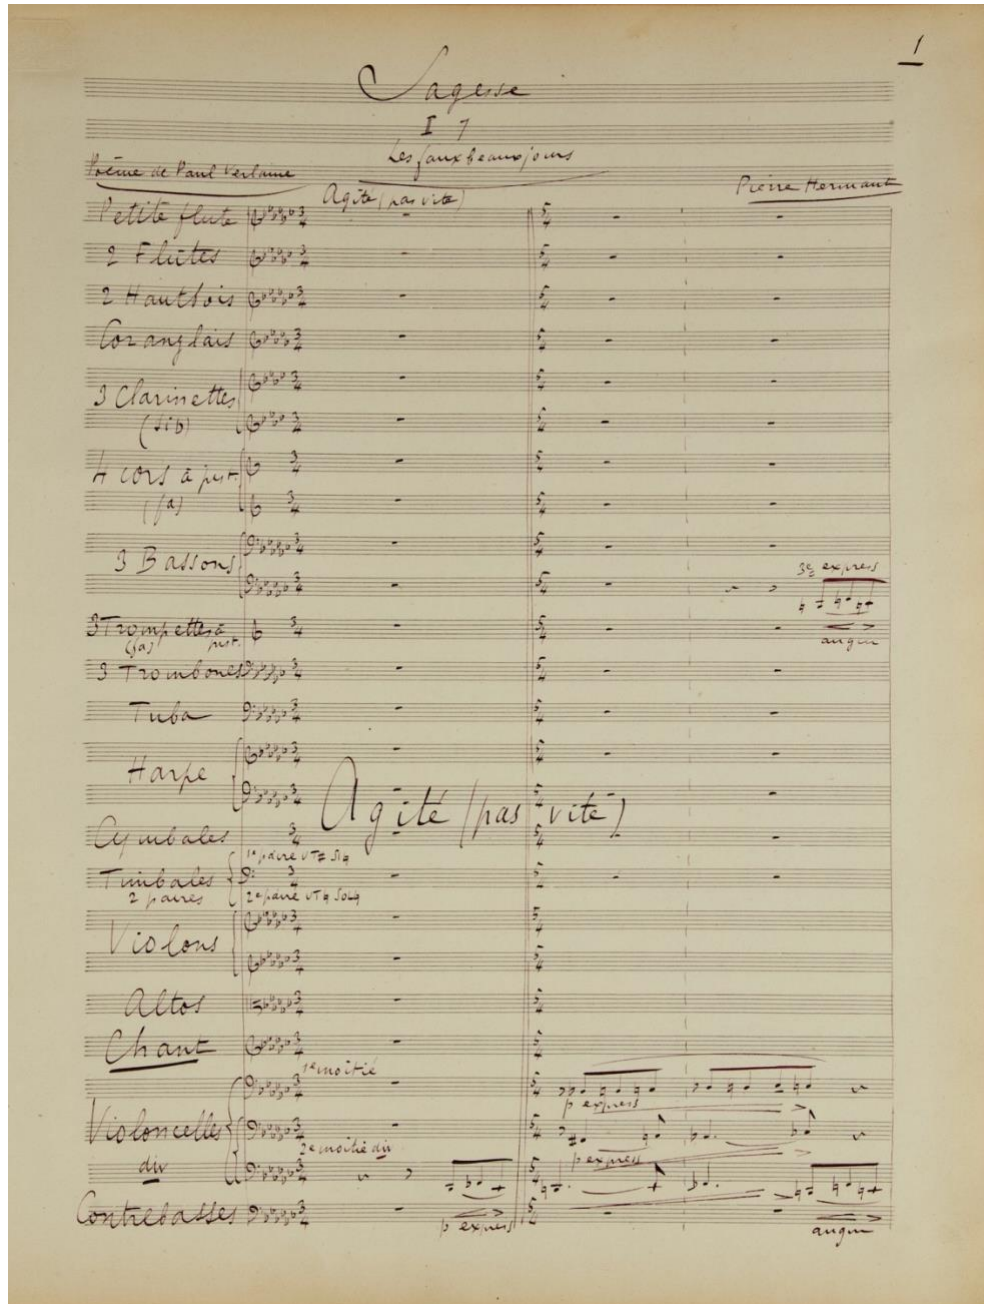 1
Sagesse
I 7
Les faux beaux jours
Poème de Paul Verlaine
Pierre Hermant
Agité (pas vite)
Petite flute
2 Flûtes
2 Hautbois
Cor anglais
3 Clarinettes
(sib)
4 cors à pist.
(fa)
3 Bassons
3e express
augm
3 Trompettes à pist.
(fa)
3 Trombones
Tuba
Harpe
Agité (pas vite)
Cymbales
1e paire UT♮ SI♮
Timbales
2 paires
2e paire UT♮ SOL♮
Violons
Altos
Chant
1e moitié
p express
Violoncelles
2e moitié div
p express
div
Contrebasses
p express
augm